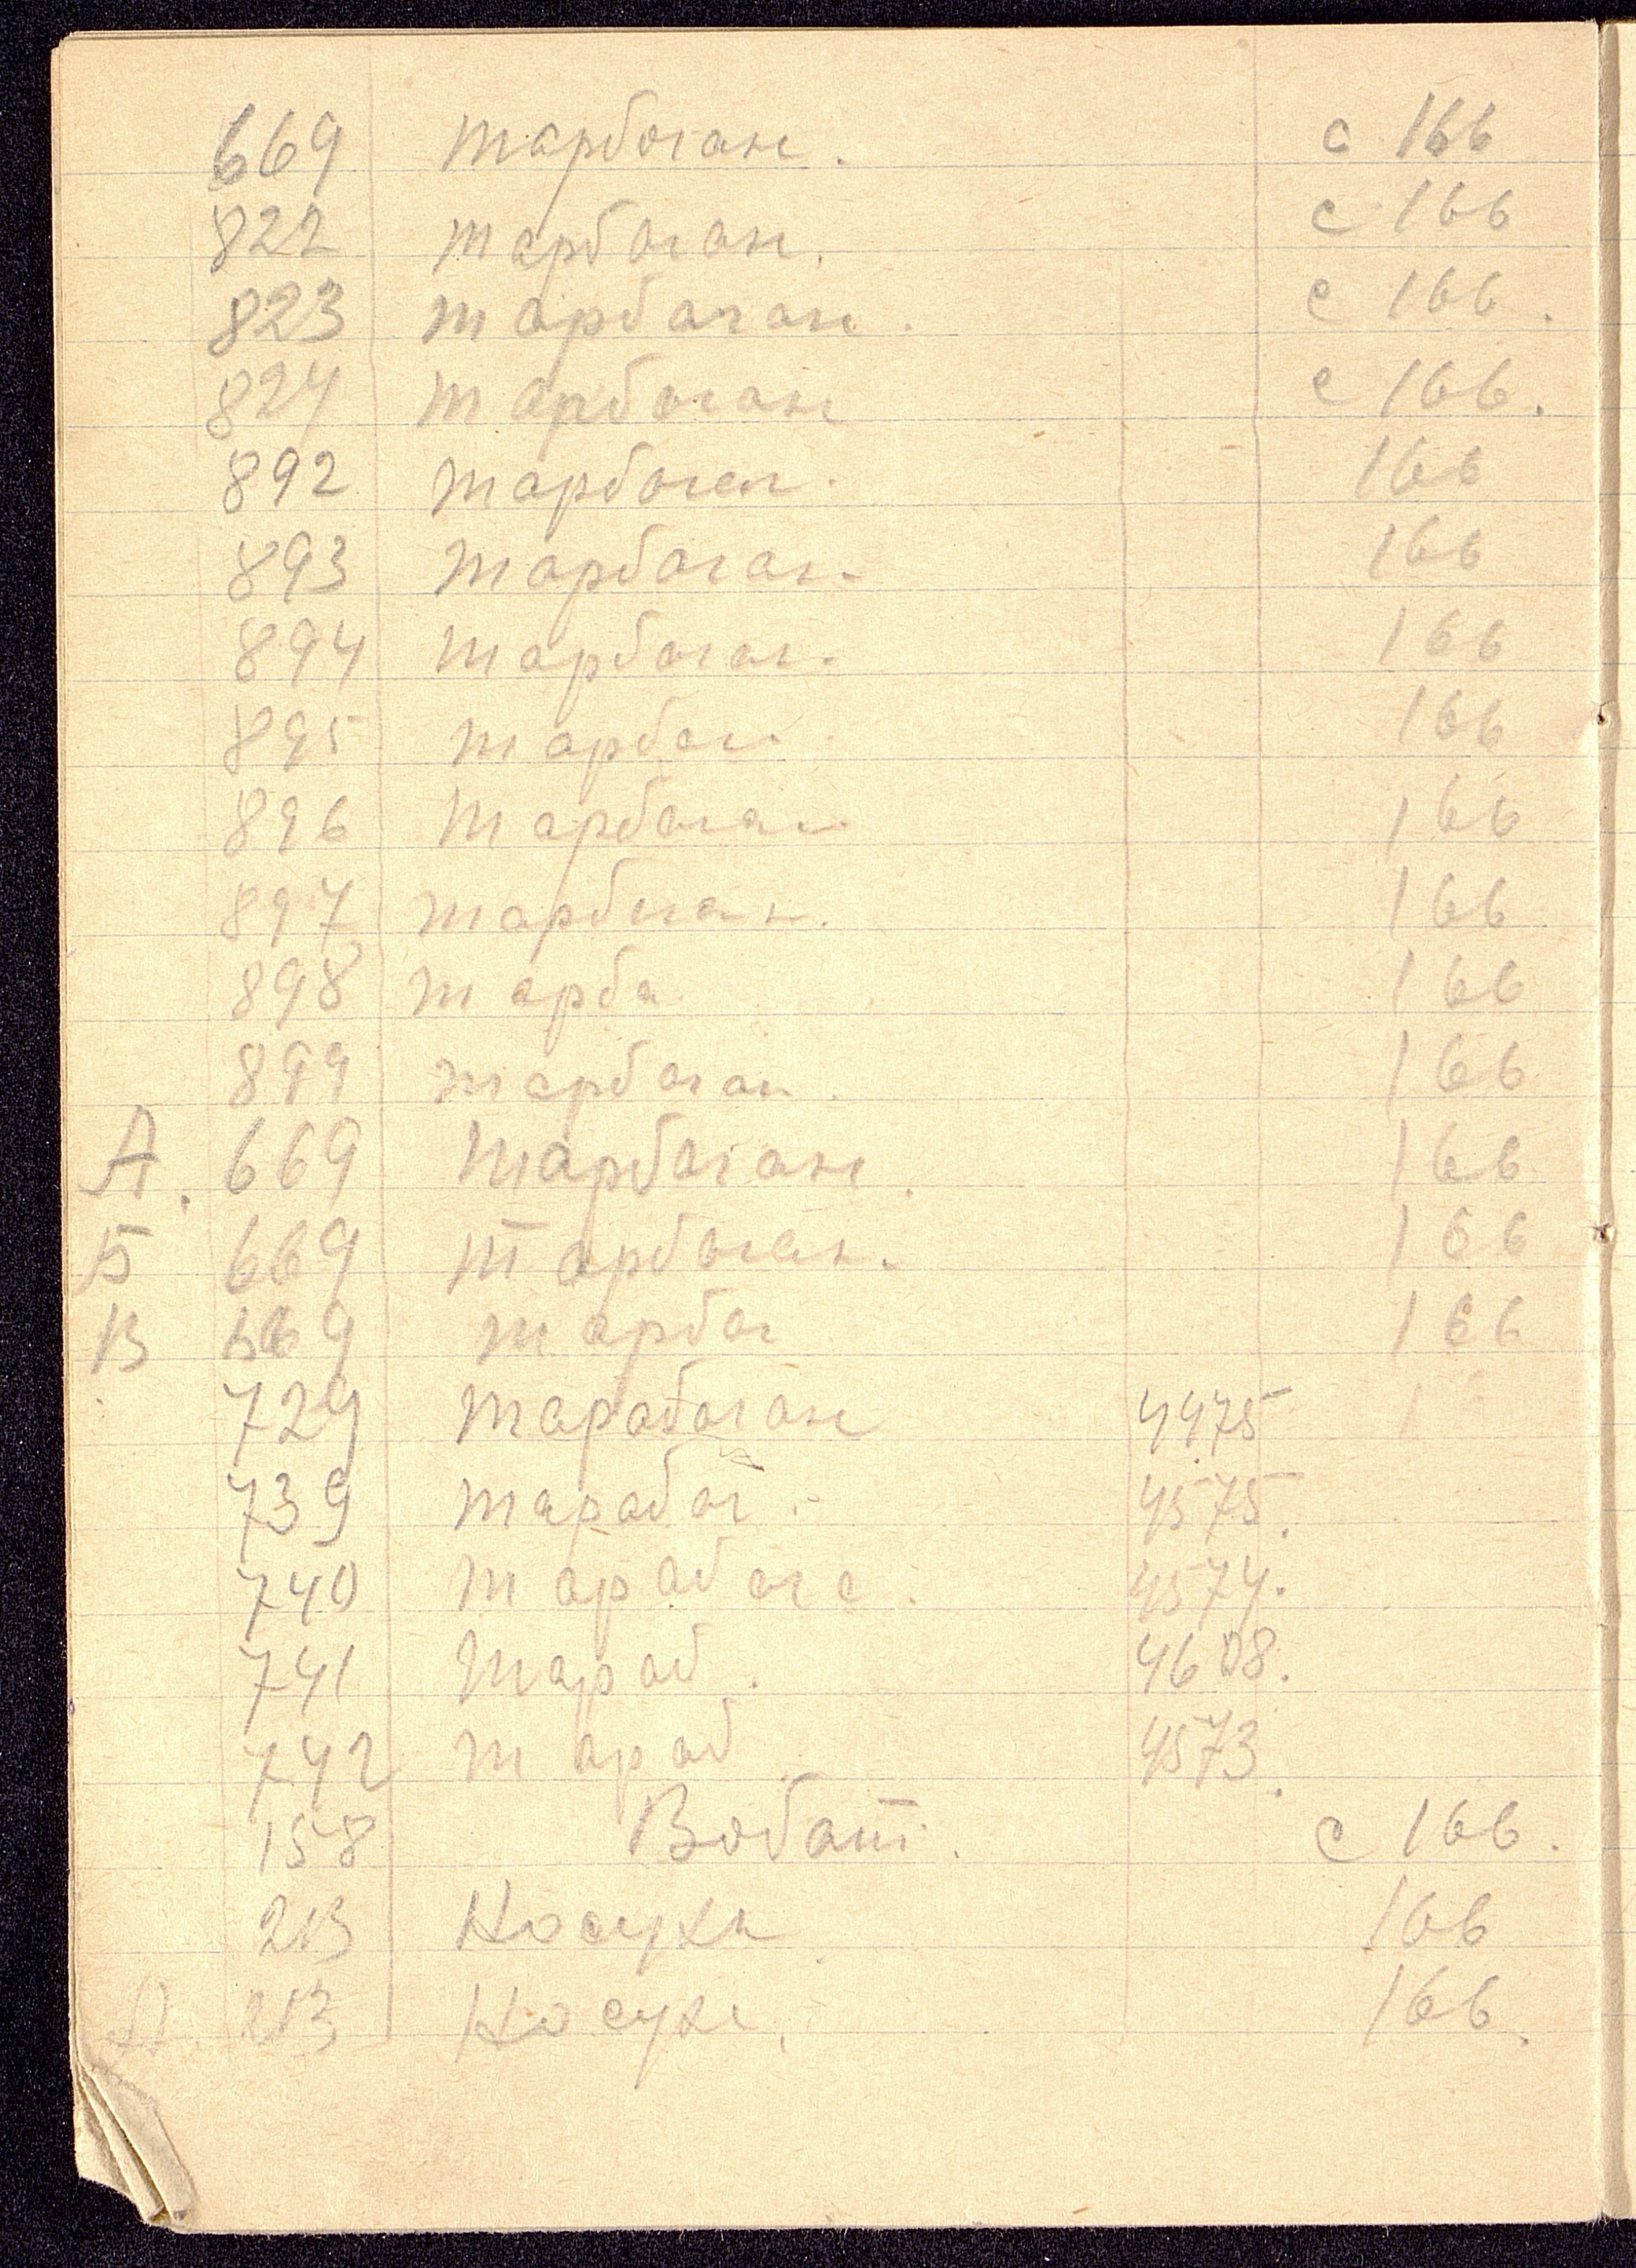 669 тарбоган. с 166
822 тарбоган. с 166
823 тарбоган. с 166.
824 тарбоган с 166.
892 тарбоган. 166
893 тарбоган. 166
894 тарбоган. 166
895 тарбоган 166
896 тарбоган 166
897 тарбоган. 166
898 тарба 166
899 тарбоган. 166
А. 669 тарбоган. 166
Б 669 тарбоган. 166
В 669 тарбог 166
729 тарабоган 4475
739 тарабог. 4575.
740 тарабога. 4574.
741 тараб. 4608.
742 тараб 4573.
158 Вобат. с 166.
213 Носуха. 166
А. 213 Носуха. 166.